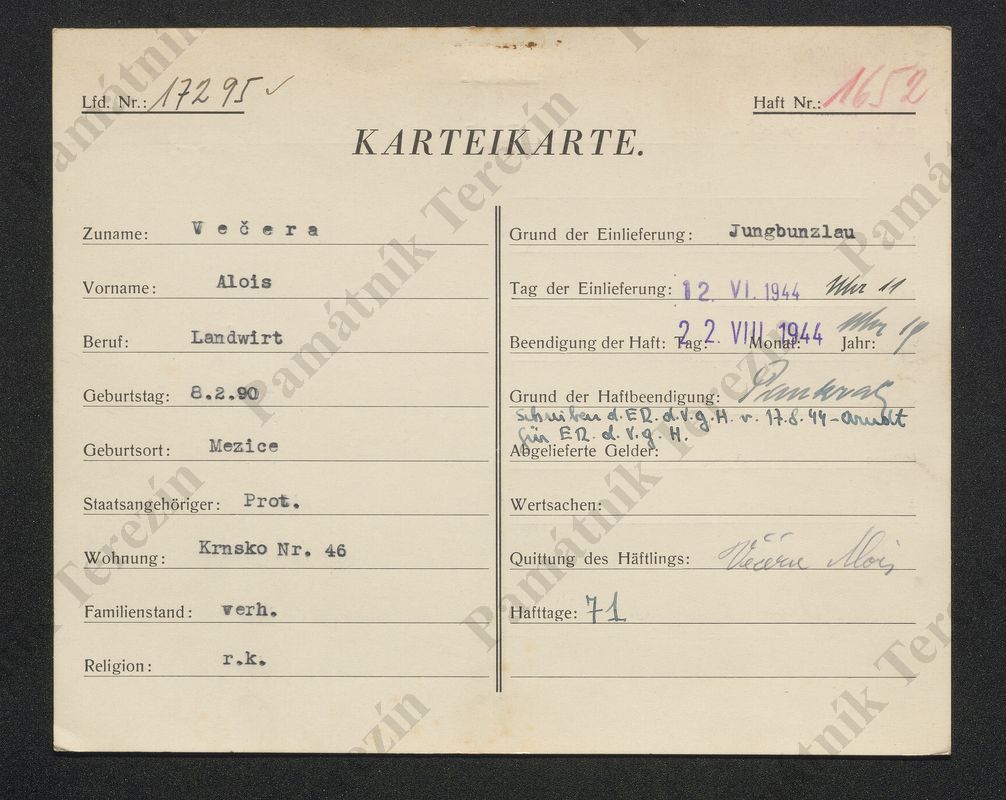 Lfd. Nr.: 17295
Haft Nr.: 1652
KARTEIKARTE.
Zuname: Večera
Vorname: Alois
Beruf: Landwirt
Geburtstag: 8.2.90
Geburtsort: Mezice
Staatsangehöriger: Prot.
Wohnung: Krnsko Nr. 46
Familienstand: verh.
Religion: r.k.
Grund der Einlieferung: Jungbunzlau
Tag der Einlieferung: 12. VI. 1944 Uhr 11
Beendigung der Haft: Tag: Monat: Jahr: 22 VIII 1944 Uhr 19
Grund der Haftbeendigung: Pankratz
Schreiben d. ER. d. V. g. H. v. 17.8.44 - Arndt
für ER. d. V. g. H.
Abgelieferte Gelder:
Wertsachen:
Quittung des Häftlings: Večera Alois
Hafttage: 71
Památník Terezín